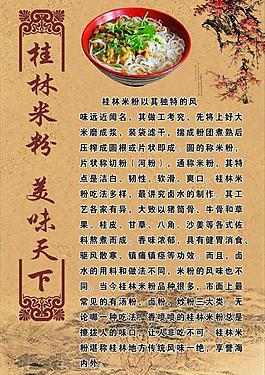 桂林米粉 美味天下
桂林米粉以其独特的风
味远近闻名，其做工考究，先将上好大
米磨成浆，装袋滤干，揣成粉团煮熟后
压榨成圆根或片状即成。圆的称米粉，
片状称切粉（河粉），通称米粉，其特
点是洁白、韧性、软滑、爽口。桂林米
粉吃法多样，最讲究卤水的制作。其工
艺各家有异，大致以猪筒骨、牛骨和草
果、桂皮、甘草、八角、沙姜等各式佐
料熬煮而成。香味浓郁，具有健胃消食、
驱风散寒、镇痛镇痉等功效。而且，卤
水的用料和做法不同，米粉的风味也不
同。当今桂林米粉品种很多，市面上最
常见的有汤粉、卤粉、炒粉三大类。无
论哪一种吃法，香喷喷的桂林米粉总是
撩拨人的味口，让人非吃不可。桂林米
粉堪称桂林地方传统风味一绝，享誉海
内外。